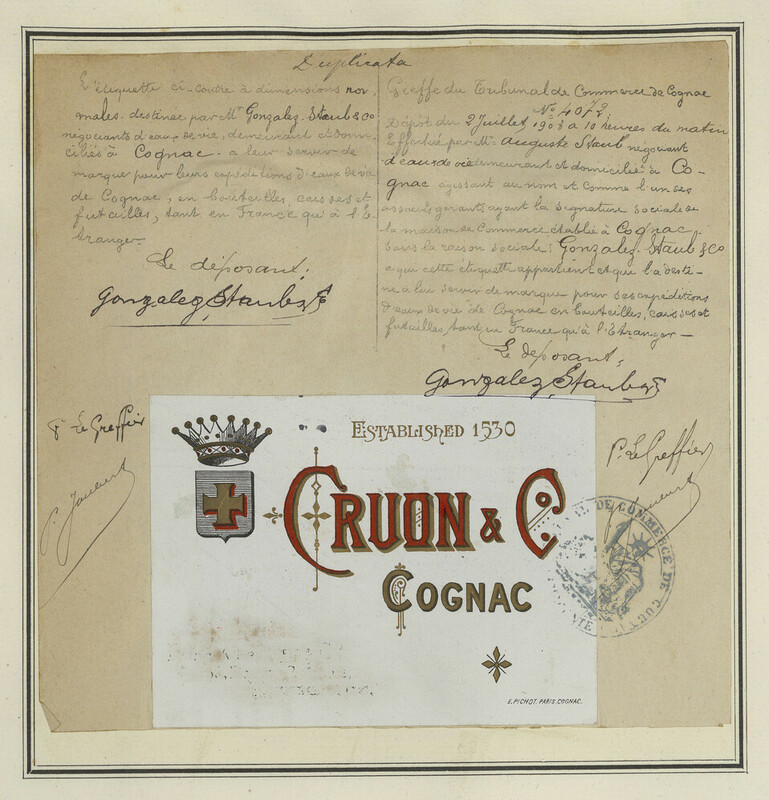 Duplicata
L'étiquette ci-contre à dimensions nor
males, destinée par Mrs Gonzalez, Staub & Co
négociants d'eaux de vie, demeurant et domi
ciliés à Cognac, a leur servir de
marque pour leurs expéditions d'eaux de vie
de Cognac, en bouteilles, caisses et
futailles, tant en France qu'à l'E
tranger.
Le déposant:
Gonzalez, Staub & Co
Greffe du Tribunal de Commerce de Cognac
No 4073
Dépôt du 2 Juillet 1908 à 10 heures du matin
Effectué par Mr Auguste Staub négociant
d'eaux de vie demeurant et domicilié à Co-
gnac agissant au nom et comme l'un des
associés gérants ayant la signature sociale de
la maison de Commerce établie à Cognac
sous la raison sociale: Gonzalez, Staub & Co
a qui cette étiquette appartient et qui l'a desti-
né à lui servir de marque pour ses expéditions
d'eaux de vie de Cognac en bouteilles, caisses et
futailles, tant en France qu'à l'Etranger—
Le déposant,
Gonzalez, Staub & Co
P. Le Greffier
P. Le Greffier
ESTABLISHED 1530
CRUON & Co
COGNAC
E. PICHOT. PARIS. COGNAC.
DE COMMERCE DE